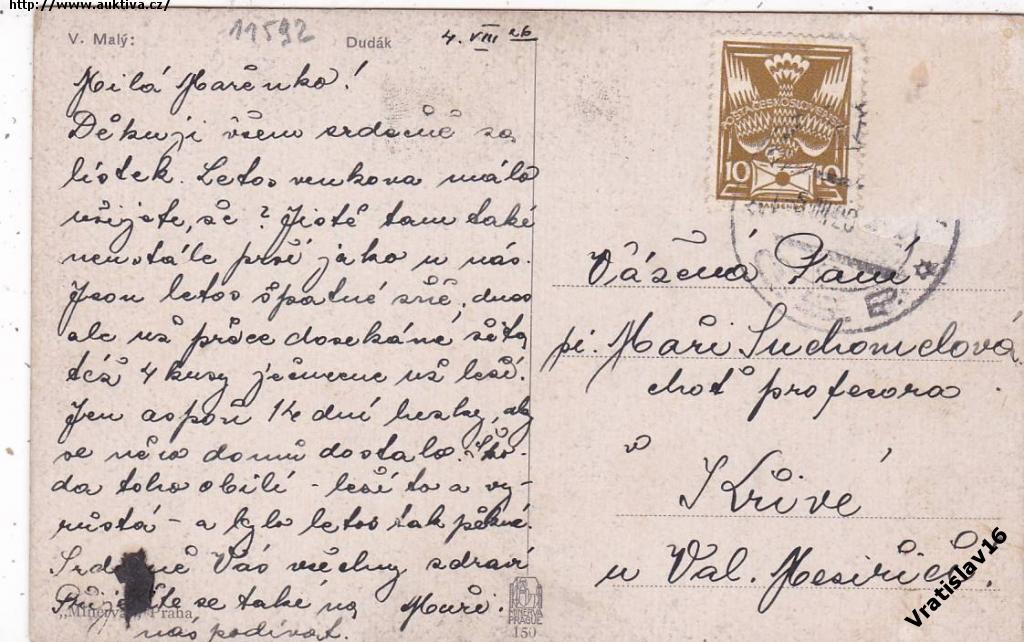 http://www.auktiva.cz/
V. Malý:
11592
Dudák
4. VIII 26
Milá Mařenko!
Děkuji všem srdečně za
lístek. Letos venkova málo
užijete, že? Jistě tam také
neustále prší jako u nás.
Jsou letos špatné žně, dnes
ale už práce dosekáné žita
též 4 kusy ječmene už leží.
Jen aspoň 14 dní hezky, aby
se něco domů dostalo. Ško-
da toho obilí - leží to a vy-
růstá - a bylo letos tak pěkné.
Srdečně Vás všechny zdraví
Přijeďte se také na Maří.
nás podívat.
"Minerva", Praha
MINERVA
PRAGUE
150
POŠTA ČESKOSLOVENSKÁ
10 10
Vážená Paní
pí. Maří Suchomelová
choť profesora
v
Křivé
u Val. Meziříčí.
Vratislav16